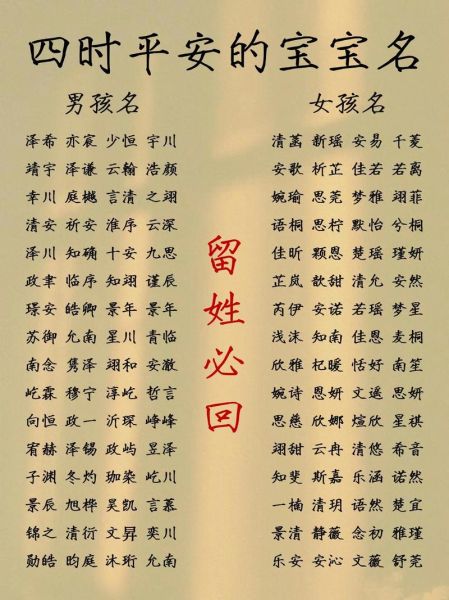 四时平安的宝宝名
男孩名
泽希 亦宸 少恒 宇川
靖宇 泽谦 云翰 浩颜
幸川 庭樾 言清 之翊
清安 祈安 淮序 云深
泽川 知确 十安 九思
政聿 临序 知翊 谨辰
璟安 皓卿 景年 景年
苏御 允南 星川 青临
南念 隽泽 翊和 安澈
屹霖 穆宁 淳屹 哲言
向恒 政一 沂琛 峥峰
宥赫 泽锡 政屿 昱泽
子渊 冬灼 珈染 屹川
景辰 旭桦 吴凯 言慕
锦之 清衍 文昇 奕川
勋皓 昀庭 沐珩 允南
女孩名
清菡 新瑶 安易 千菱
安歌 析芷 佳若 若离
婉瑜 思莞 梦雅 翊菲
语桐 思柠 默怡 兮桐
佳昕 颗恩 楚瑶 瑾妍
芷岚 歆甜 清允 安然
芮伊 安诺 若瑶 梦星
浅沫 知南 佳恩 麦桐
欣雅 杞暖 恬好 南笙
婉诗 恩妍 文遥 思妍
思慈 欣娜 煊欣 星祺
翊甜 云冉 清悠 希音
知斐 斯嘉 乐涵 诺然
一楠 清玥 语然 楚宜
景清 静薇 念初 雅瑾
乐安 安沁 文薇 舒莞
留姓必回